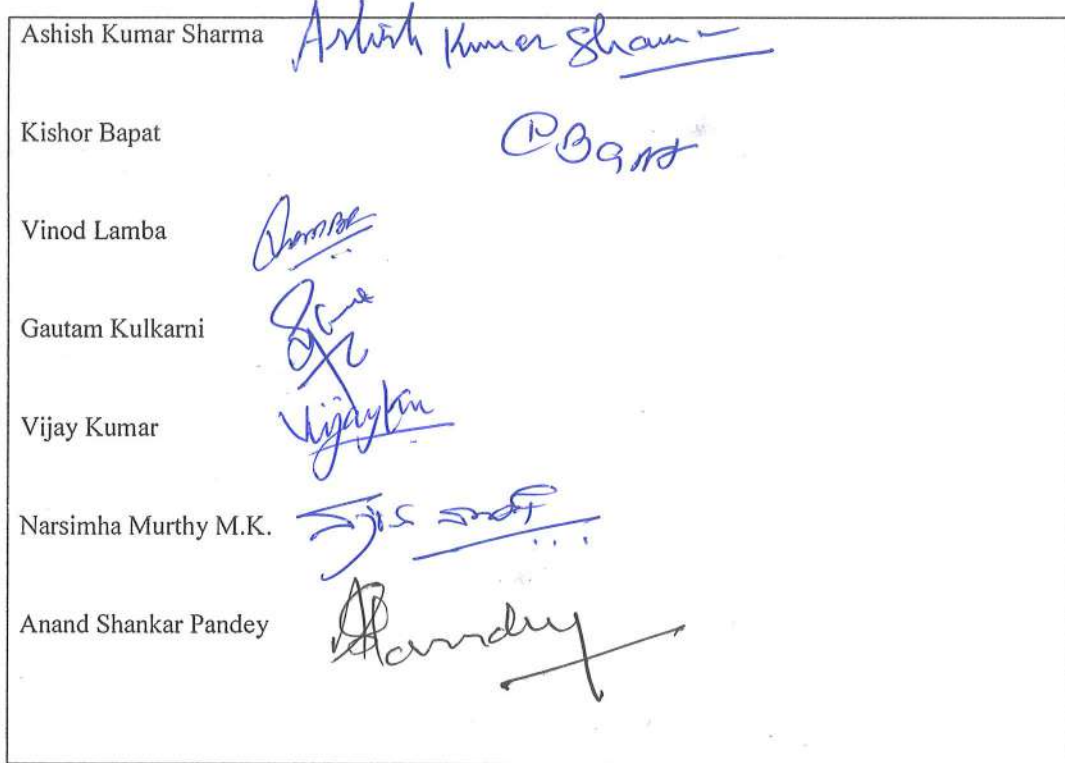 Ashish Kumar Sharma Ashish Kumar Sharma
Kishor Bapat
Vinod Lamba
Gautam Kulkarni
Vijay Kumar VijayKm
Narsimha Murthy M.K.
Anand Shankar Pandey Pandey